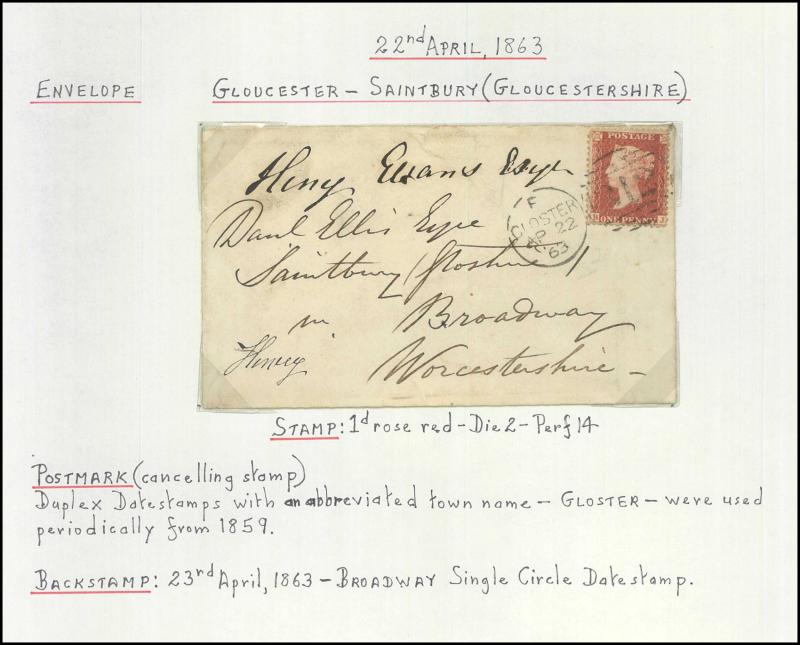 22nd APRIL, 1863
ENVELOPE GLOUCESTER - SAINTBURY (GLOUCESTERSHIRE)
POSTAGE
ONE PENNY
Heny Evans Esqr
F
GLOSTER
AP 22
63
Danl Ellis Eyre
Saintbury Glosshire
in Broadway
Henry
Worcestershire -
STAMP: 1d rose red - Die 2 - Perf 14
POSTMARK (cancelling stamp)
Duplex Datestamps with an abbreviated town name - GLOSTER - were used
periodically from 1859.
BACKSTAMP: 23rd April, 1863 - BROADWAY Single Circle Datestamp.